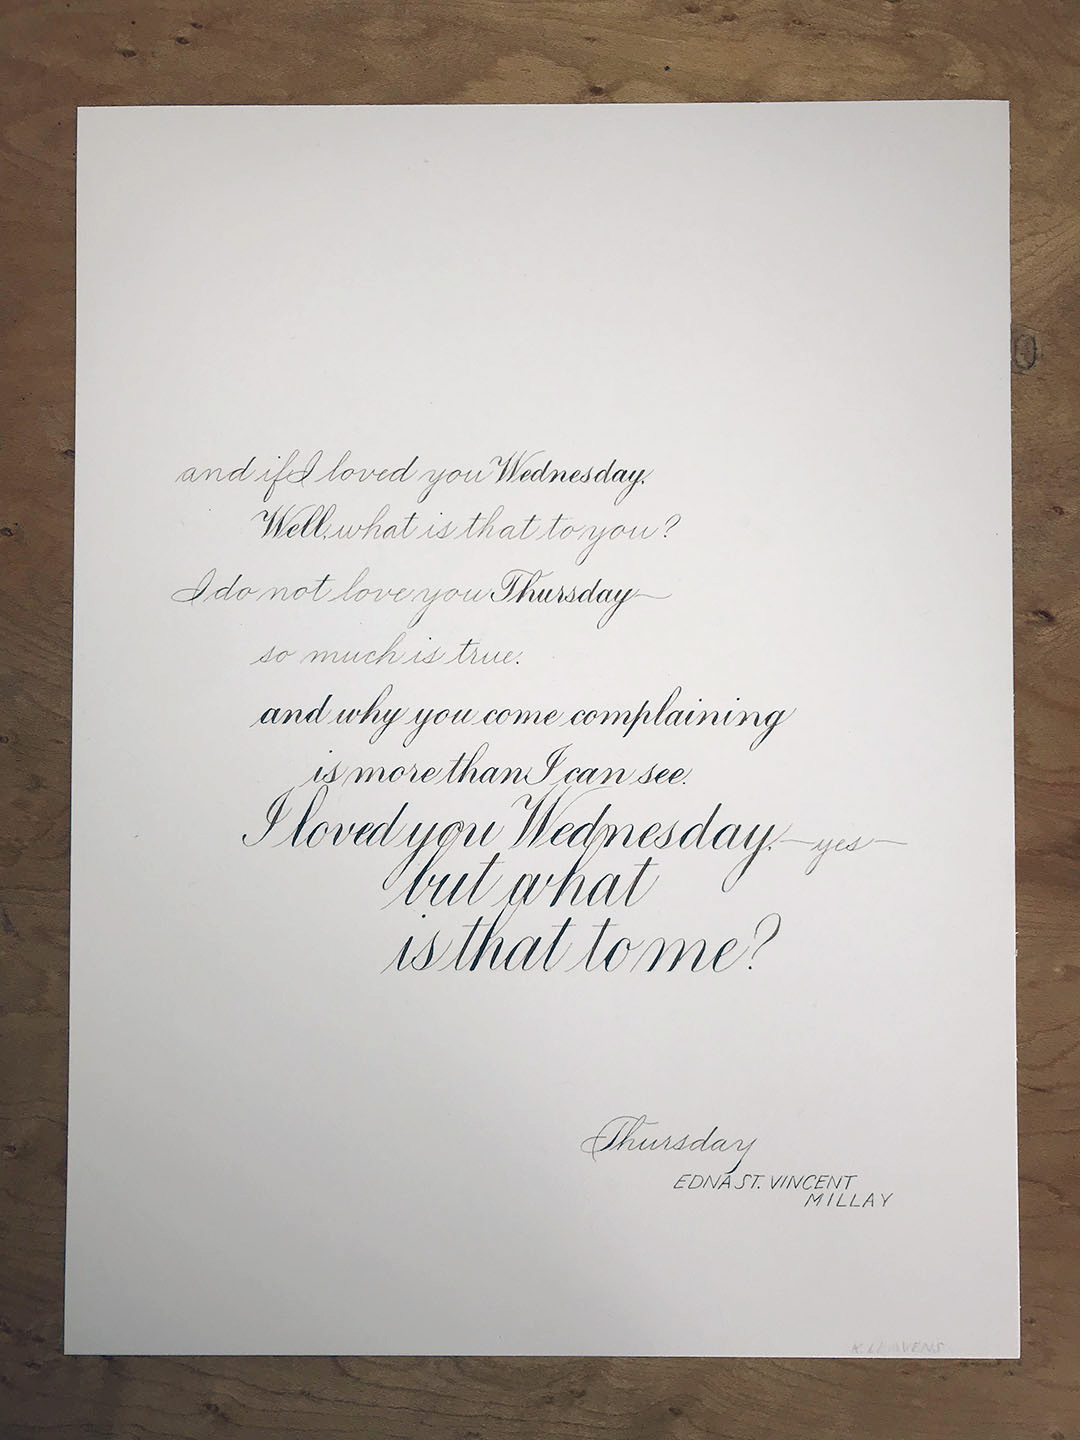 and if I loved you Wednesday,
Well, what is that to you?
I do not love you Thursday—
so much is true.
and why you come complaining
is more than I can see.
I loved you Wednesday,—yes—
but what
is that to me?
Thursday
EDNA ST. VINCENT
MILLAY
K. LEAVENS